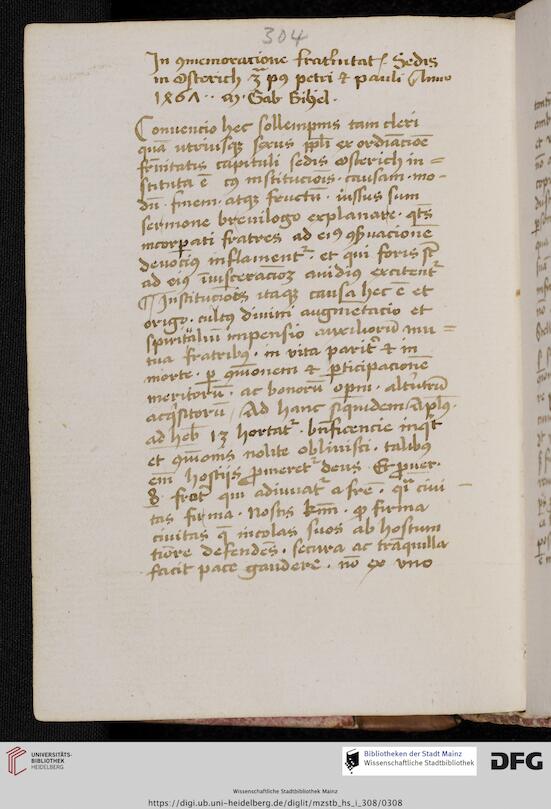 304
In 9memoracione fratrnitat( Sedis
in Osterich 3a p9 petri & pauli Anno
1867 . . M. Gab Bihel .
Convencio hec sollempnis tam cleri
qua utriusq3 sexus ppli ex ordīacioē
frnītatis capituli sedis osterich in=
stituta ē cq institucōis . causam . mo-
dū . finem . atq3 fructū . iussus sum
sermone breviloqo explanare . qts
incorpati fratres ad ei9 9srvacionē
devoci9 inflament2 . et qui foris st
ad ei9 īviscerācioz avidi9 excitent2
Institucōis itaq3 causa hec ē et
origo . cult9 divini augmētacio et
spiritaliū impensio auxiliorū mu=
tua fratrib9 . in vita parit & in
morte . p 9munionem & pticipacionē
meritorū . ac bonorū opm . altrūtrū
acqsitorū / Ad hanc siqdem / Apls .
ad heb 13 hortat2 . bnficencie inqt
et 9munionis nolite oblivisci . talib9
em hostijs pmeret2 deus . Et pver .
8 . frat qui adiuvat2 a fre . qi civi –
tas firma . Nostis kmi . qp firma
civitas q incolas suos ab hostium
timore defendēs . secura ac trāquilla
facit pace gaudere . nō ex uno
UNIVERSITÄTS-
BIBLIOTHEK
HEIDELBERG
Bibliotheken der Stadt Mainz
Wissenschaftliche Stadtbibliothek
DFG
Wissenschaftliche Stadtbibliothek Mainz
https://digi.ub.uni-heidelberg.de/diglit/mzstb_hs_i_308/0308